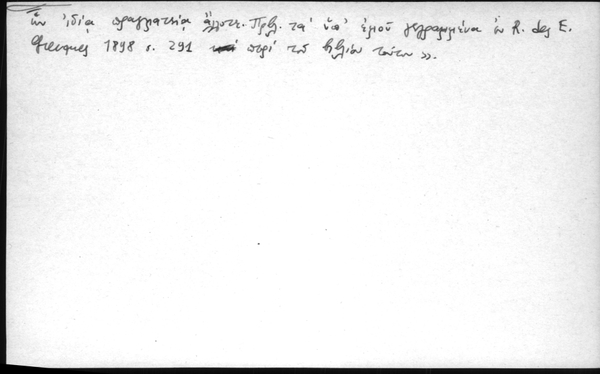 ἐν ἰδίᾳ πραγματείᾳ ἄλλοτε. Πρβλ. τὰ ὑπ' ἐμοῦ γεγραμμένα ἐν R. des E.
Grecques 1898 σ. 291 περὶ τοῦ βιβλίου τούτου».